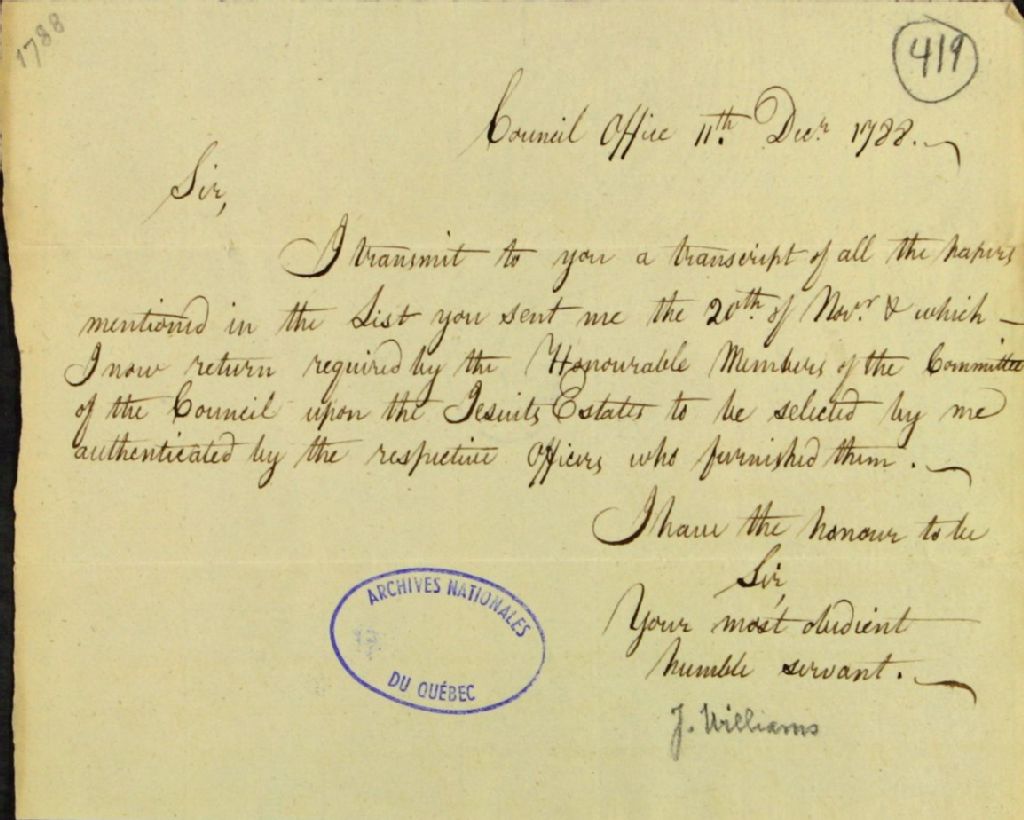 1788
419
Council Office 11th. Decr. 1788.
Sir,
I transmit to you a transcript of all the papers
mentioned in the List you sent me the 20th. of Novr. & which
I now return required by the Honourable Members of the Committee
of the Council upon the Jesuits Estates to be selected by me
authenticated by the respective Officers who furnished them.
I have the honour to be
Sir,
Your most obedient
humble servant.
J. Williams
ARCHIVES NATIONALES
DU QUÉBEC